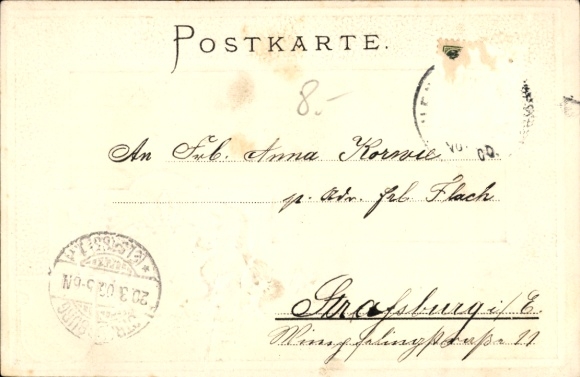 POSTKARTE.
8.-
An Frl. Anna Korwie
p. Adr. frl Flach
Strafsburg i/E.
Wimpfelingstraße 11
20.3.0 5-6N